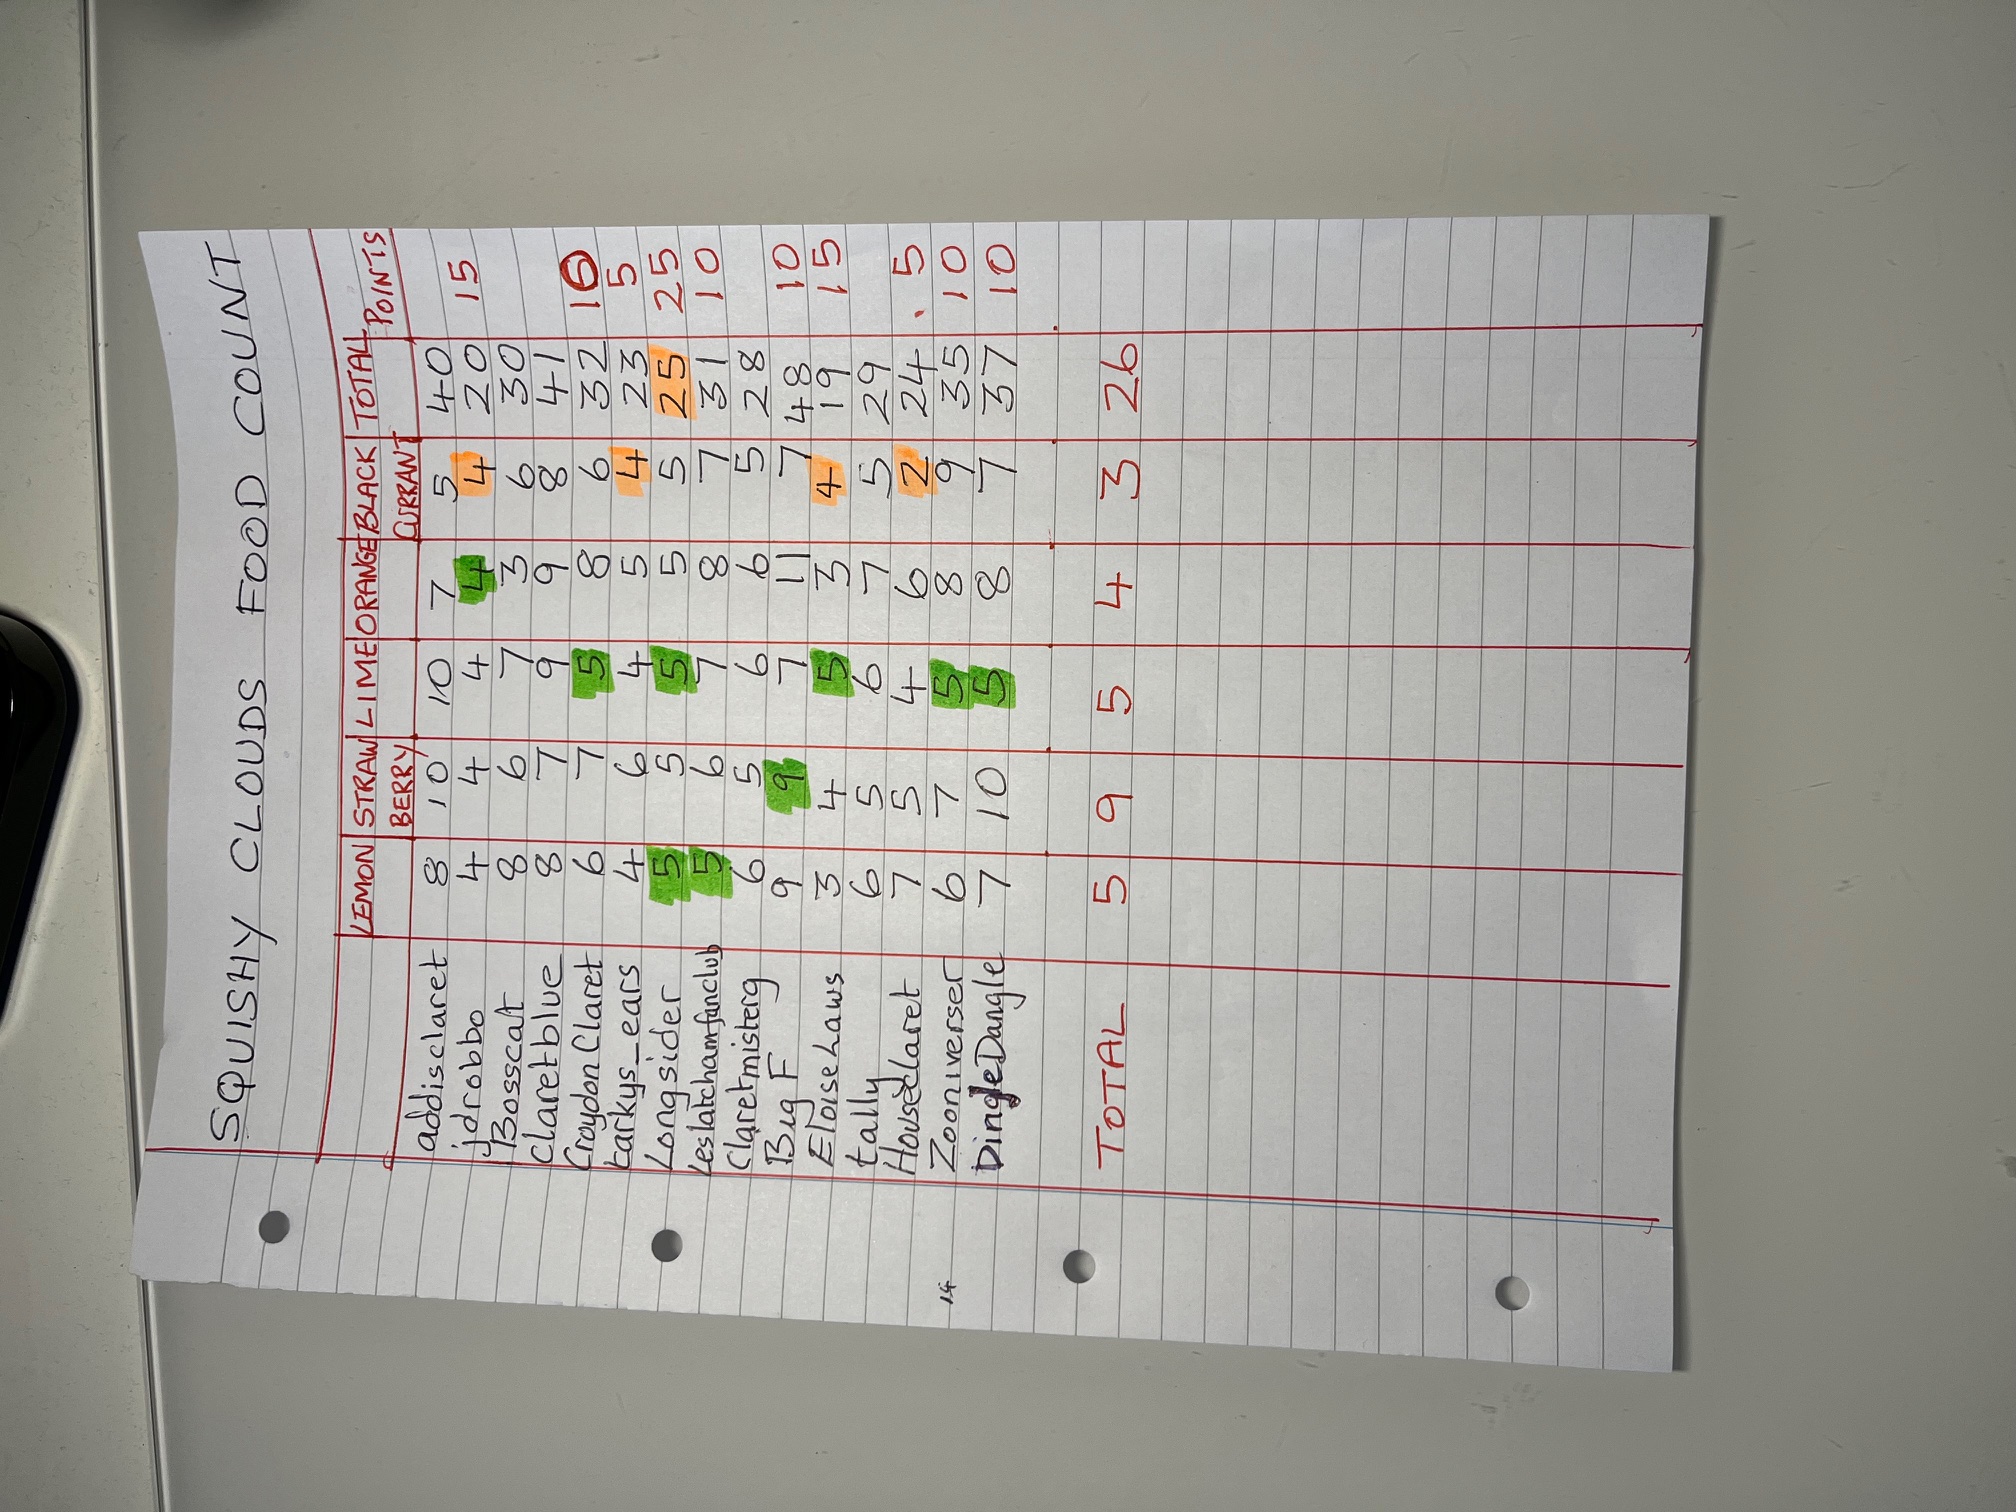 SQUISHY CLOUDS FOOD COUNT
LEMON STRAW BERRY LIME ORANGE BLACK CURRANT TOTAL POINTS
addisclaret 8 10 10 7 5 40
jdrobbo 4 4 4 4 4 20 15
Bosscat 8 6 7 3 6 30
Claretblue 8 7 9 9 8 41
CroydonClaret 6 7 5 8 6 32 10
tarkys_ears 4 6 4 5 4 23 5
Longsider 5 5 5 5 5 25 25
Leslatchamfanclub 5 6 7 8 7 31 10
Claretmisterg 6 5 6 6 5 28
Big F 9 9 7 11 7 48 10
EloiseLaws 3 4 5 3 4 19 15
tally 6 5 6 7 5 29
HouseClaret 7 5 4 6 2 24 5
14 Zooniverser 6 7 5 8 9 35 10
DingleDangle 7 10 5 8 7 37 10
TOTAL 5 9 5 4 3 26